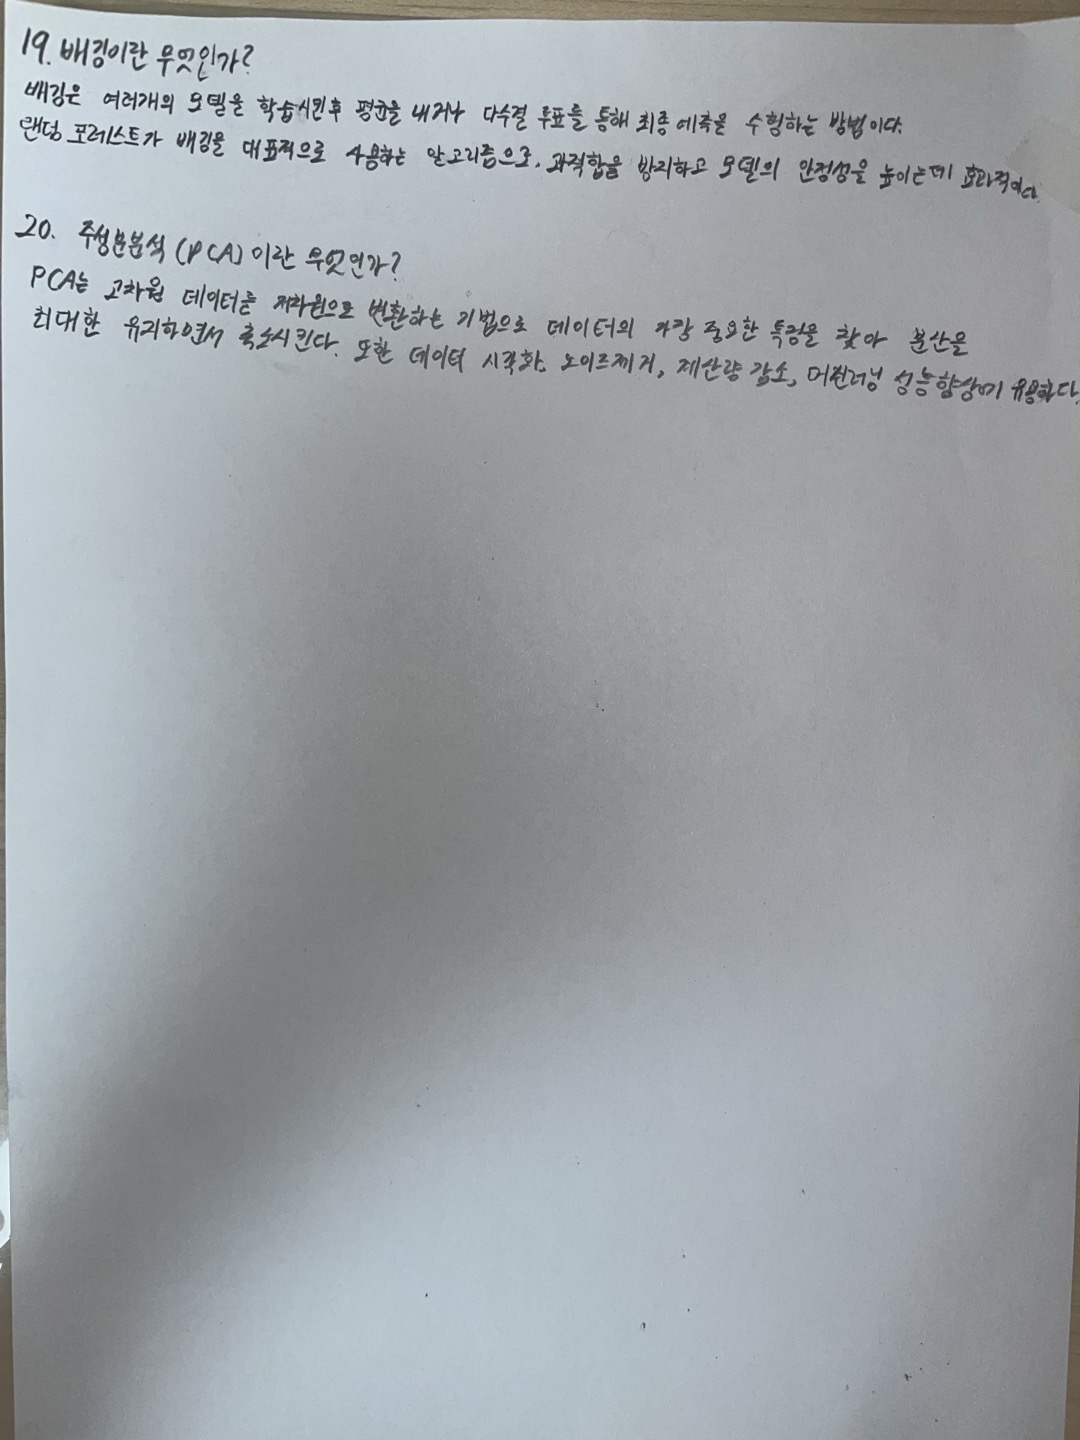 19. 배깅이란 무엇인가?
배깅은 여러개의 모델을 학습시킨후 평균을 내거나 다수결 투표를 통해 최종 예측을 수행하는 방법이다.
랜덤 포레스트가 배깅을 대표적으로 사용하는 알고리즘으로, 과적합을 방지하고 모델의 안정성을 높이는데 효과적이다.
20. 주성분분석(PCA)이란 무엇인가?
PCA는 고차원 데이터를 저차원으로 변환하는 기법으로 데이터의 가장 중요한 특징을 찾아 분산을
최대한 유지하면서 축소시킨다. 또한 데이터 시각화, 노이즈제거, 계산량 감소, 머신러닝 성능향상에 유용하다.